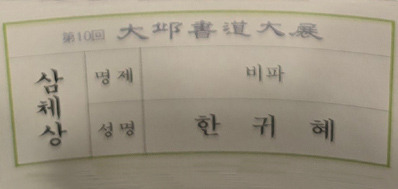 第10回 大邱書道大展
삼체상
명제 비파
성명 한귀혜